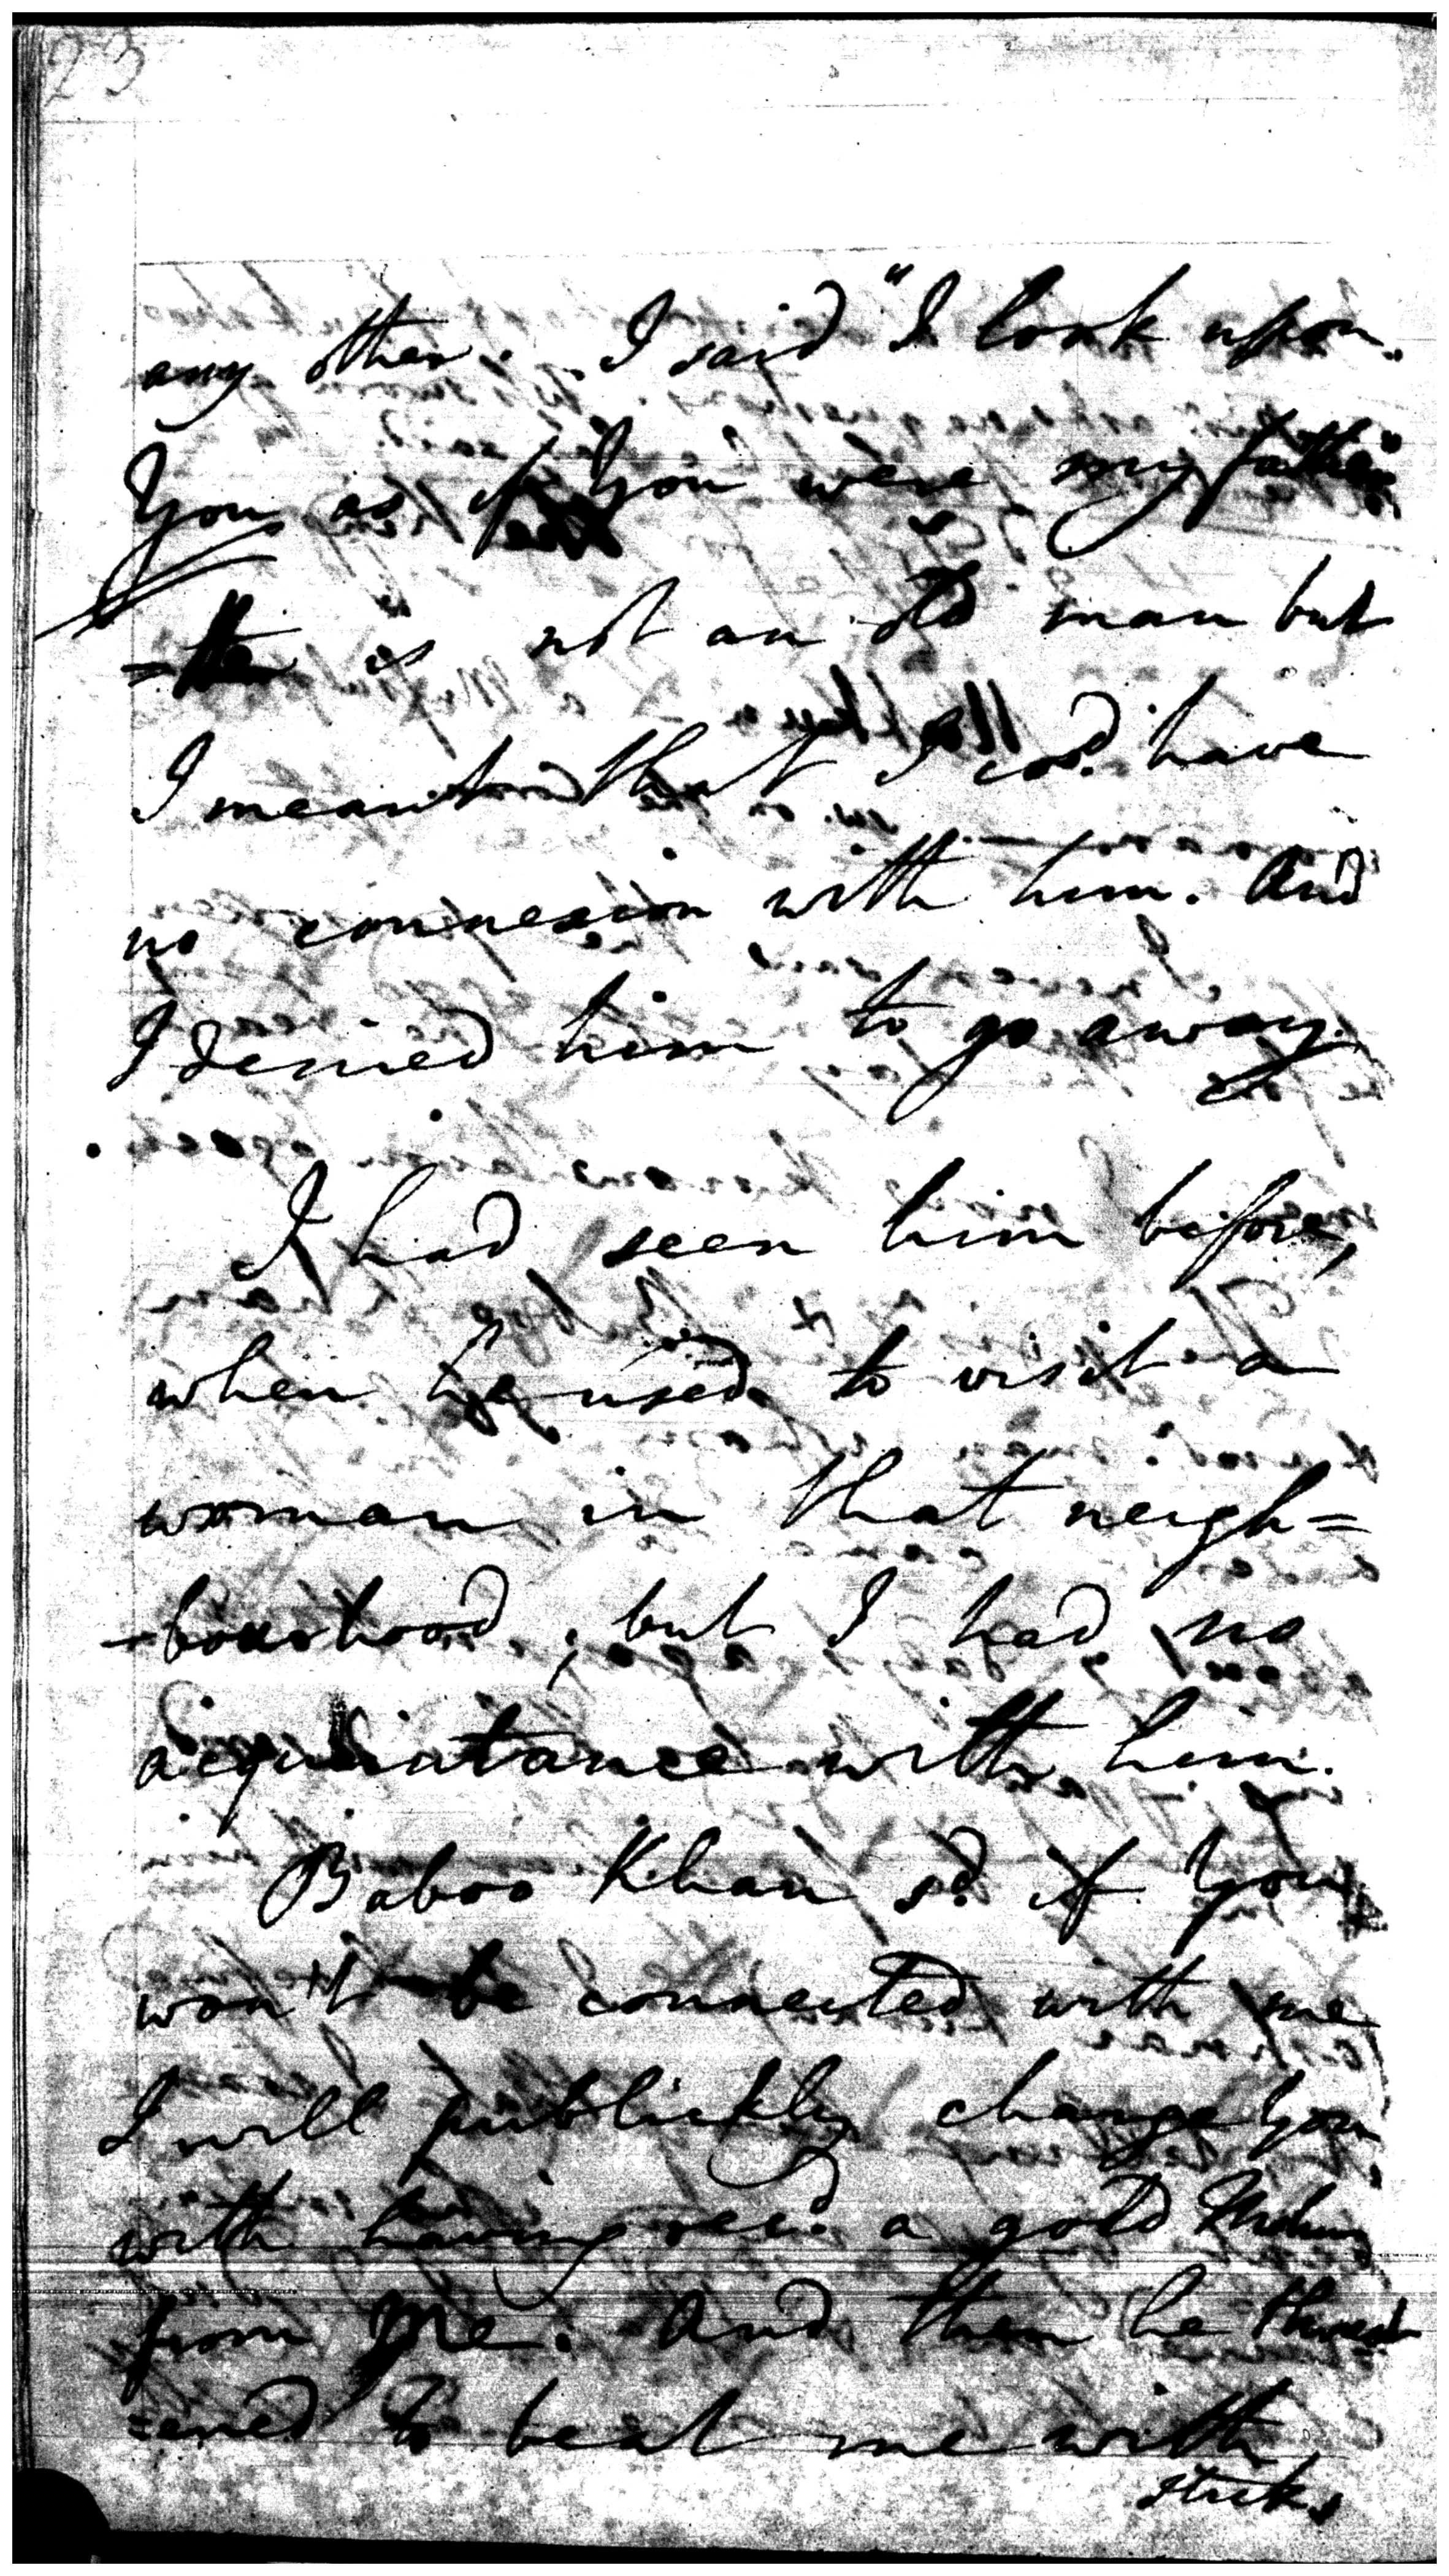 23
any other. I said "I look upon
you as if you were my father"
He is not an old man but
I meant that I cod. have
no connexion with him. And
I desired him to go away.
I had seen him before,
when he used to visit a
woman in that neigh=
-bourhood, but I had no
acquaintance with him.
Baboo Khan sd. if you
won't be connected with me
I will publickly charge you
with having recd. a gold Mohur
from me. And then he threat
=ened to beat me with
sticks